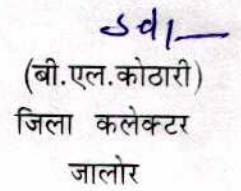 (बी.एल.कोठारी)
जिला कलेक्टर
जालोर